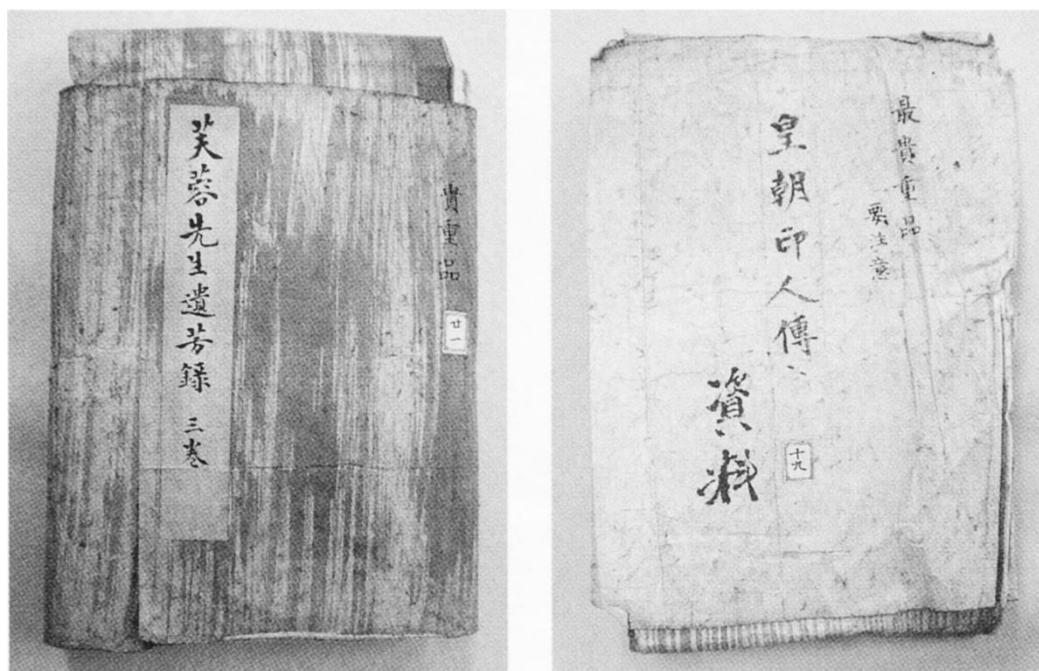 芙蓉先生遺芳録 三巻
貴重品
廿一
最貴重品
要注意
皇朝印人傳
資料
十九